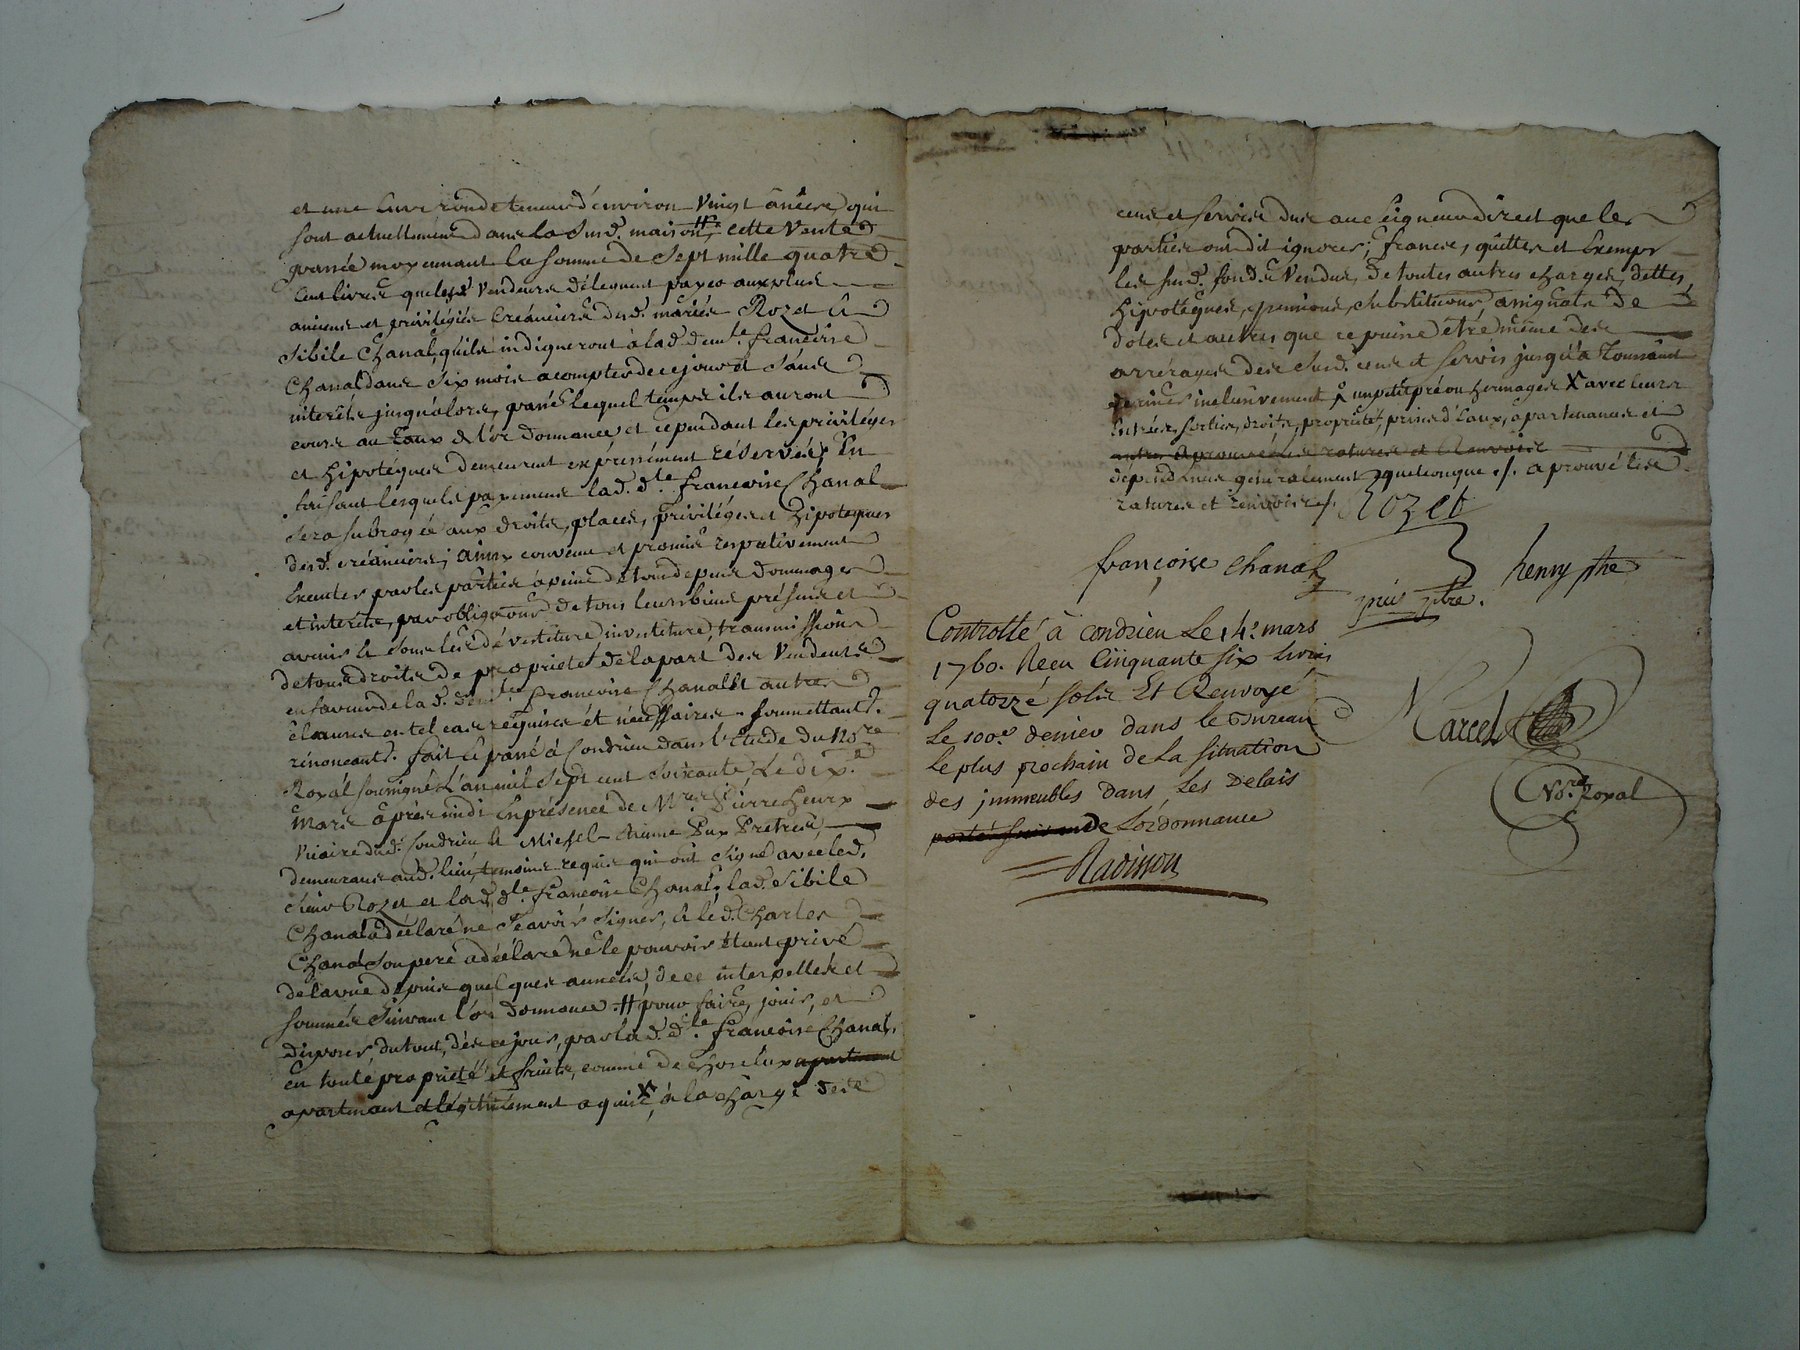 et une cuve ronde tenant d'environ Vingt ânées, qui
sont actuellement dans la Susd. maison #, cette Vente
passée moyennant la somme de Sept mille quatre
Cent livres que lesd. Vendeurs délèguent payer aux plus
anciens et privilégiés Creanciers desd. mariés Rozet &
Sibile Chanal, qu'ils indiqueront à lad. demlle. francoise
Chanal dans Six mois a compter de ce jour et Sans
interêts jusqu'alors, passé lequel temps ils auront
cours au Taux de l'ordonnance, et cependant les privilèges
et hipotèques demeurent expressément réservés, En
faisant lesquels payemens lad. dlle. francoise Chanal
sera subrogée aux droits, places, privilèges et hipoteques
desd. créanciers; ainsy convenu et promis respectivement
Executer par les parties à peine de tous depens dommages
et interêts, par obligations de tous leurs biens présents et
avenir & sous les dévestiture investiture, transmission
de tous droits de proprieté de la part des Vendeurs
en faveur de lad. demlle. francoise Chanal & autres
clauses en tel cas requises et nécessaires. soumettant.
rénoncant. fait et passé à Condrieu dans l'Etude du nore.
Royal soussigné L'an mil Sept cent Soixante Le dixe.
Mars après midi En présence de Mre. Pierre henry
Vicaire dud. Condrieu & Michel Puy Pretres,
demeurans aud. lieu, témoins requis qui ont signé avec led.
sieur Rozet et lad. dlle. francoise Chanal, lad. Sibile
Chanal a déclaré ne Scavoir Signer, & led. Charles
Chanal son pere a déclaré ne le pouvoir étant privé
de la vue depuis quelques années, de ce interpellés et
sommés suivant l'ordonnance. # pour faire, jouir, et
disposer, du tout, dès ce jour, par lad. dlle. francoise Chanal,
en toute proprieté et fruits, comme de chose luy apartenant
apartenant et légitimement aquise X, à la charge des
cens et servis dus au Seigneur direct que les
parties ont dit ignorer; francs, quittes et Exempts
les susd. fonds Vendus, de toutes autres charges, dettes,
hipotèques, pensions, substitutions assignats de
dotes et autres que ce puisse être même des
arrérages des Susd. cens et servis jusqu'a Toussaint
dernier inclusivement un petit pré ou hermages X avec leurs
Entrées, sorties, droits, proprieté, prises d'Eaux, apartenances et
aprouvé les ratures et Renvois
dépendances généralement quelconques ./. aprouvé les
ratures et renvois ./. Rozet
françoise chanal henry ptre
puis ptre.
Controllé à condrieu Le 14e. mars
1760. Recu Cinquante six Livres
quatorze sols Et Renvoyé
Le 100e. denier dans le Bureau
Le plus prochain de La situation
des immeubles dans Les Delais
de Lordonnance
Marcel
Nore. Royal